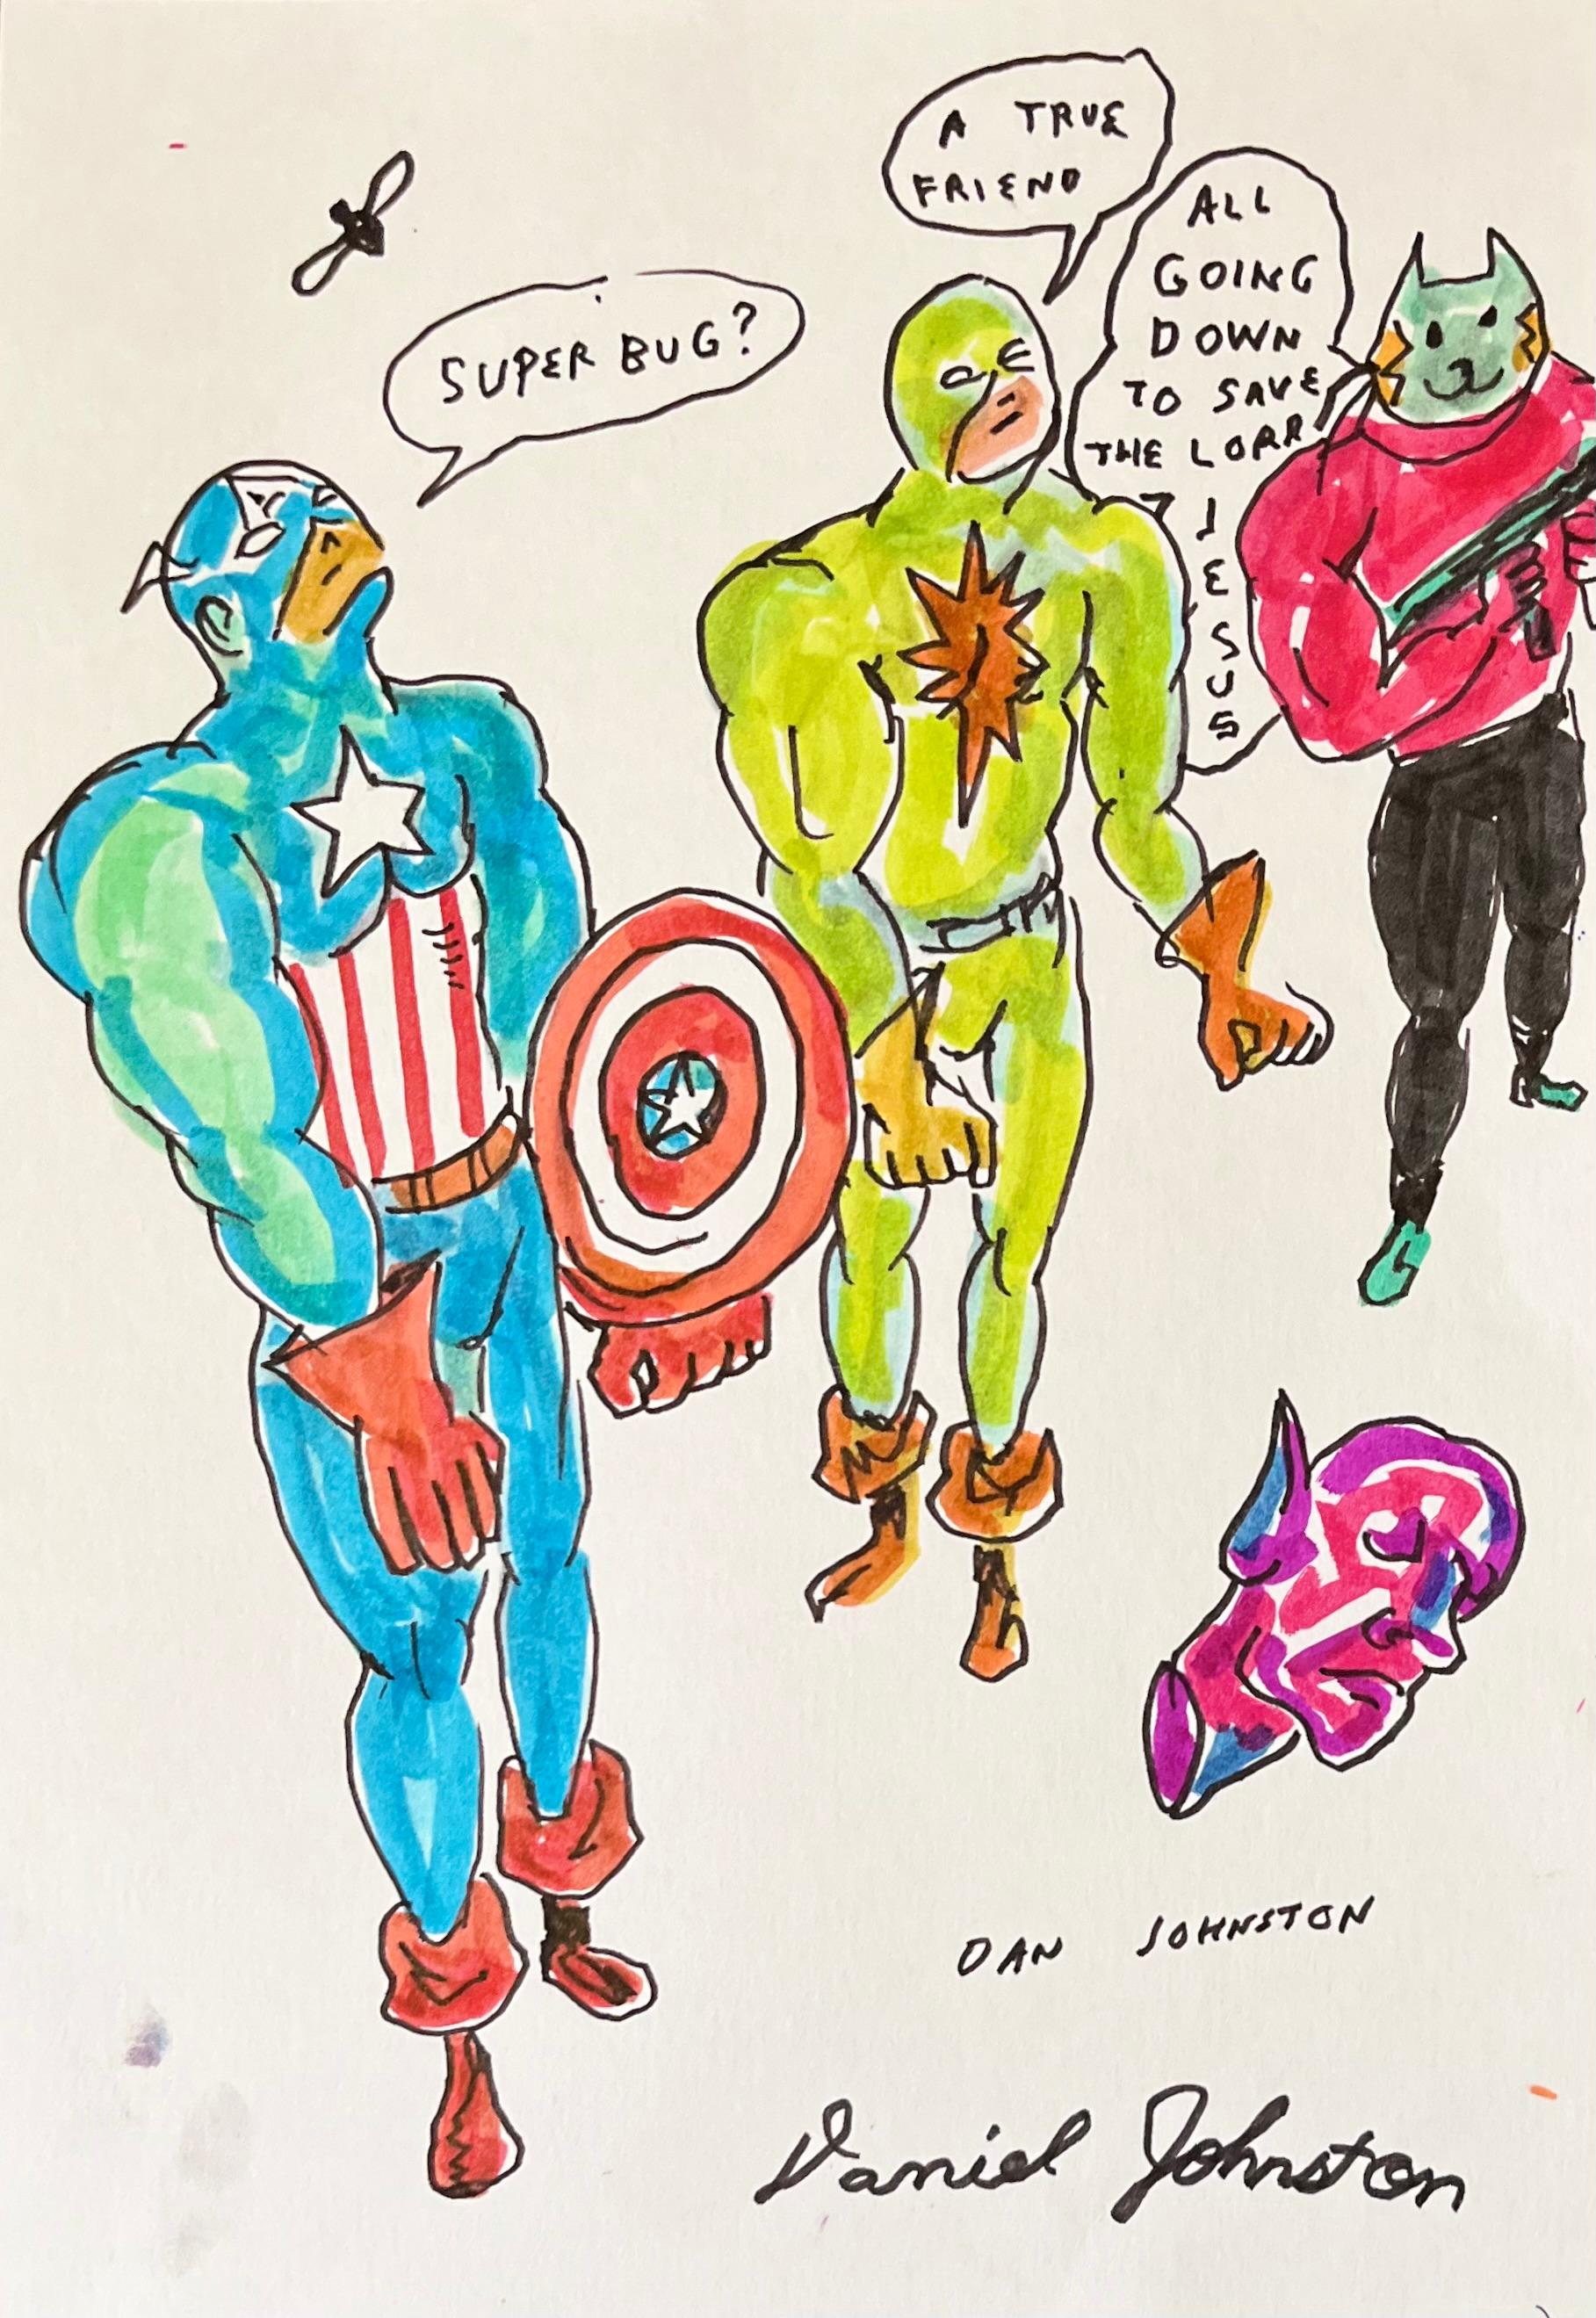 A TRUE
FRIEND
SUPER BUG?
ALL
GOING
DOWN
TO SAVE
THE LORD
J
E
S
U
S
DAN JOHNSTON
Daniel Johnston